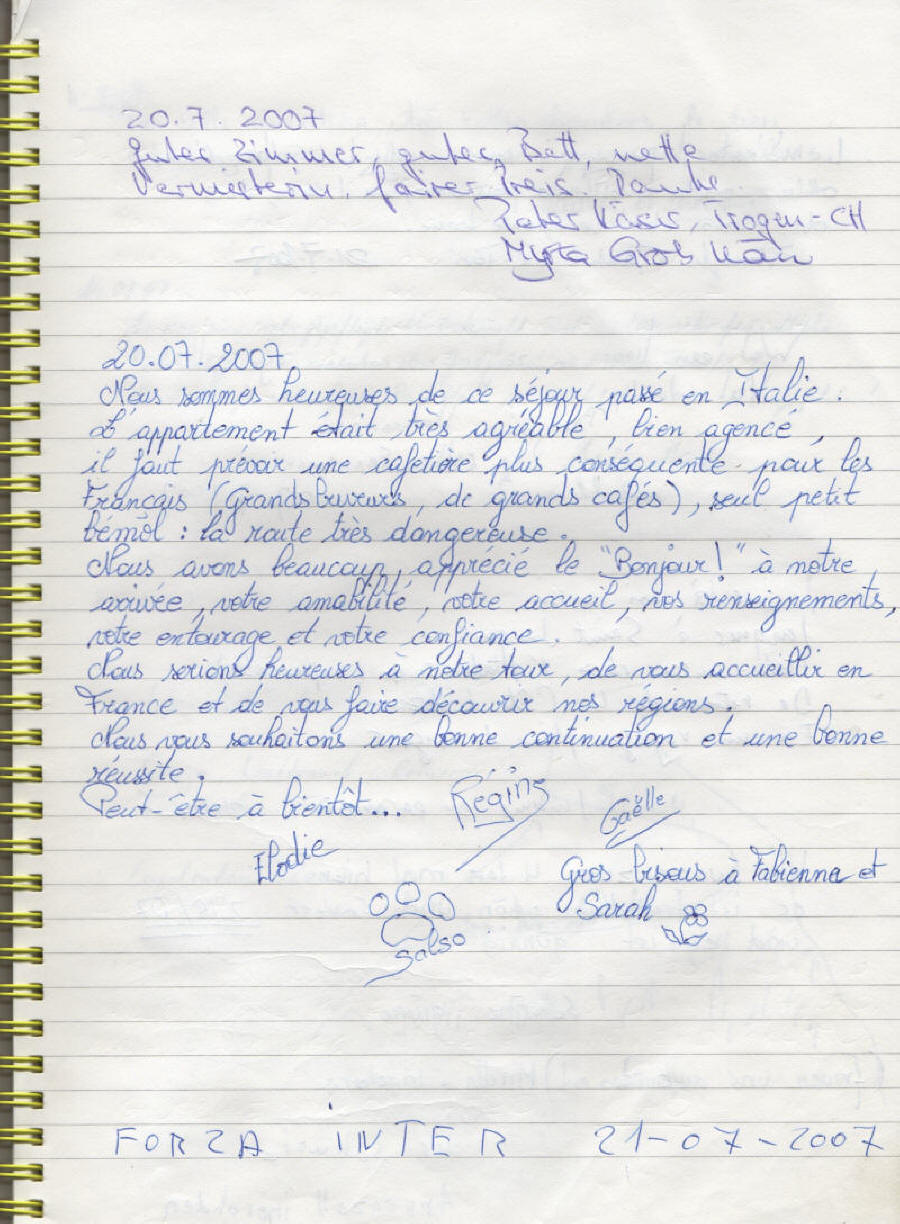 20.7.2007
gutes Zimmer, gutes Bett, nette
Vermieterin, fairer Preis. Danke
Peter Käser, Trogen-CH
Myrta Grob
20.07.2007
Nous sommes heureuses de ce séjour passé en Italie.
L'appartement était très agréable, bien agencé,
il faut prévoir une cafetière plus conséquente pour les
Français (Grands buveurs, de grands cafés), seul petit
bémol : la route très dangereuse.
Nous avons beaucoup apprécié le "Bonjour!" à notre
arrivée, votre amabilité, votre accueil, vos renseignements,
votre entourage et votre confiance.
Nous serions heureuses à notre tour, de vous accueillir en
France et de vous faire découvrir nos régions.
Nous vous souhaitons une bonne continuation et une bonne
réussite.
Peut-être à bientôt...
Régine
Gaëlle
Elodie
Gros bisous à Fabienne et
Sarah
Salso
FORZA INTER 21-07-2007